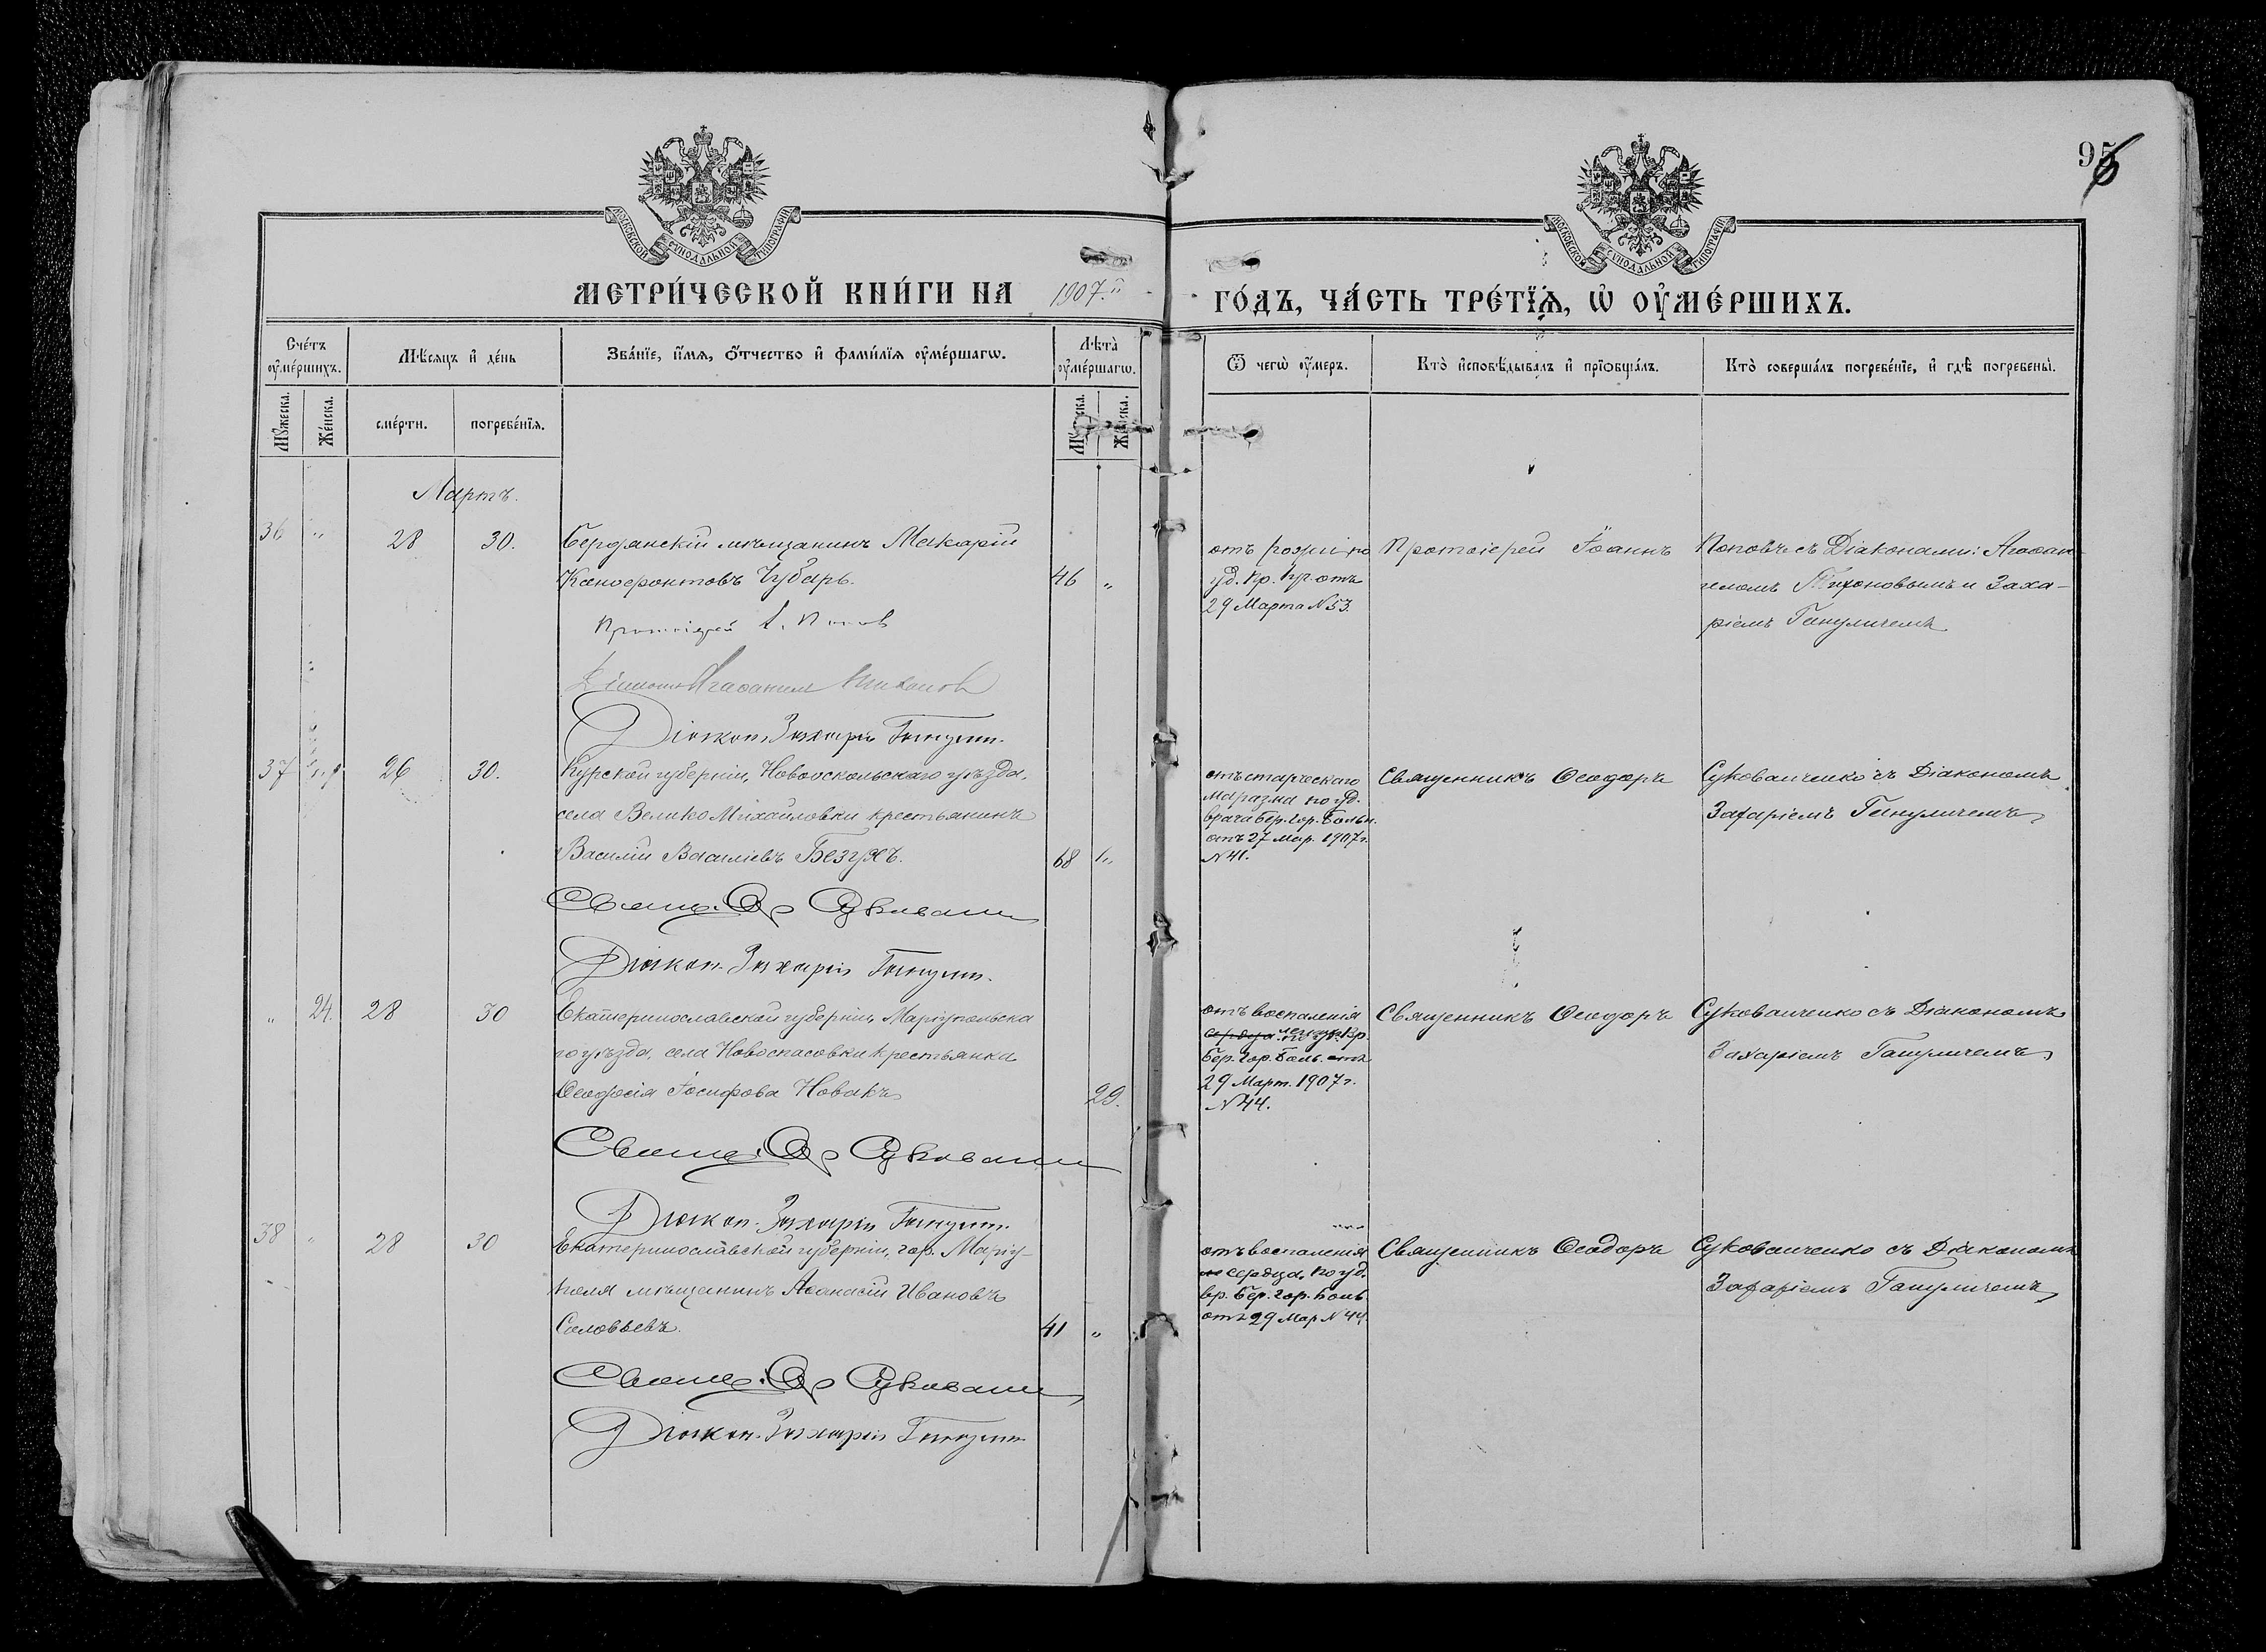 95
6
МОСКОВСКОЙ СѴНОДАЛЬНОЙ ТИПОГРАФІИ
МОСКОВСКОЙ СѴНОДАЛЬНОЙ ТИПОГРАФІИ
МЕТРИ́ЧЕСКОЙ КНИ́ГИ НА 1907.й ГО́ДЪ, ЧА́СТЬ ТРЕ́ТЇѦ, Ѡ҆ ОУ҆МЕ́РШИХЪ.
Сче́тъ оу҆ме́ршихъ.
Мꙋ́жеска.
Же́нска.
Мѣ́сяцъ и҆ де́нь
сме́рти.
погребе́нїѧ.
Зва́нїе, и҆́мѧ, ѻ҆́тчество и҆ фами́лїѧ оу҆ме́ршагѡ.
Лѣ́та оу҆ме́ршагѡ.
Же́нска.
Ѿ чегѡ̀ оу҆́меръ.
Кто̀ и҆сповѣ́дывалъ и҆ прїѡбща́лъ.
Кто̀ соверша́лъ погребе́нїе, и҆ гдѣ̀ погребены̀.
Мартъ.
36 " 28 30. Бердянскій мѣщанинъ Макарій
Ксенофонтовъ Чубарь. 46 "
Протоіерей І. Поповъ
Діаконъ Агаѳангел Тихонов
Діакон. Захарія Ганулич.
отъ рожи по
уд. вр. отъ
29 Марта N 53.
Протоіерей Іоаннъ
Поповъ съ Діаконами: Агаѳан-
геломъ Тихоновымъ и Заха-
ріемъ Гануличемъ
37 " 26 30. Курской губерніи, Новооскольскаго уѣзда,
села Велико Михайловки крестьянинъ
Василій Василіевъ Безгубъ. 68 "
Свящ. Ѳ. Сукованч
Діакон. Захарія Ганулич.
отъ старческаго
маразма по уд.
врача бер. гор. больн.
отъ 27 Мар. 1907 г.
N 41.
Священникъ Ѳеодоръ
Сукованченко съ Діакономъ
Захаріемъ Гануличемъ
" 24. 28 30 Екатеринославской губерніи, Маріупольска
го уѣзда, села Новоспасовки крестьянка
Ѳеодосія Іосифова Новакъ 29.
Свящ. Ѳ. Сукованч
Діакон. Захарія Ганулич.
отъ воспаленія
сердца легк. по уд. вр.
бер. гор. боль. отъ
29 Март. 1907 г.
N 44.
Священникъ Ѳеодоръ
Сукованченко съ Діакономъ
Захаріемъ Гануличемъ
38 " 28 30 Екатеринославской губерніи, гор. Маріу-
поля мѣщанинъ Аѳанасій Ивановъ
Соловьевъ. 41 "
Свящ. Ѳ. Сукованч
Діакон. Захарія Ганулич
отъ воспаленія
сердца, по уд.
вр. бер. гор. боль
отъ 29 Мар N 44.
Священникъ Ѳеодоръ
Сукованченко съ Діакономъ
Захаріемъ Гануличемъ